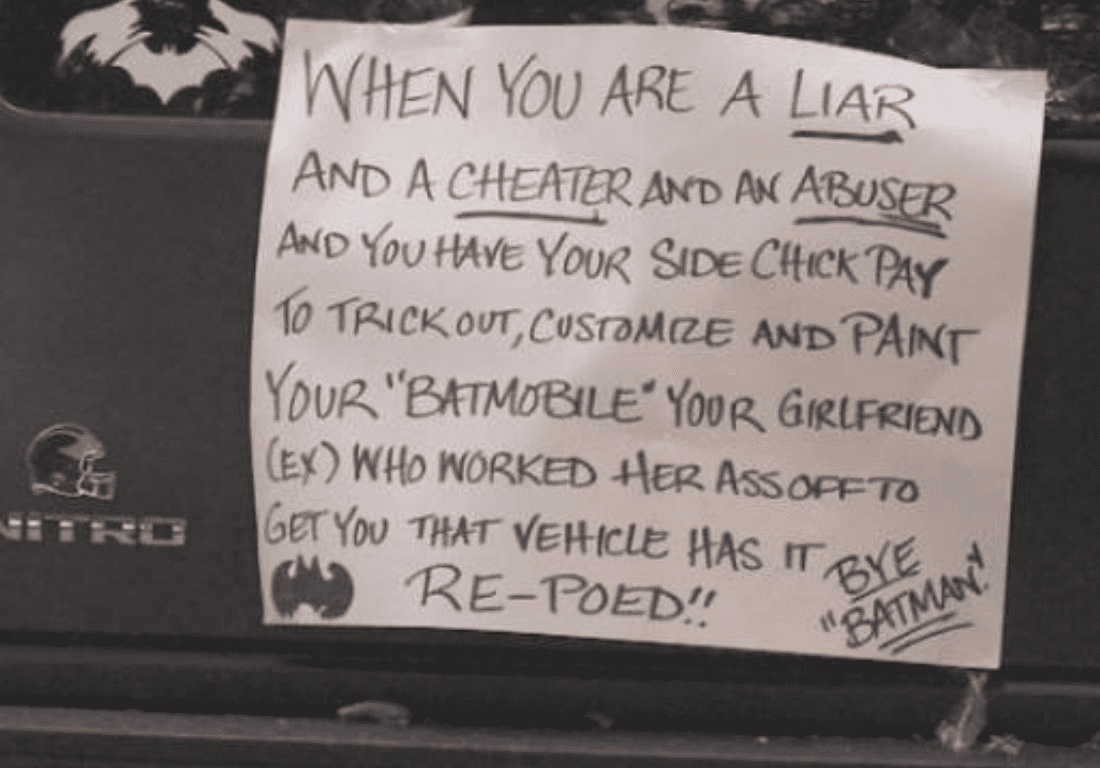 WHEN YOU ARE A LIAR
AND A CHEATER AND AN ABUSER
AND YOU HAVE YOUR SIDE CHICK PAY
TO TRICK OUT, CUSTOMIZE AND PAINT
YOUR "BATMOBILE" YOUR GIRLFRIEND
(EX) WHO WORKED HER ASS OFF TO
GET YOU THAT VEHICLE HAS IT
RE-POED!!
BYE
"BATMAN"!
NITRO